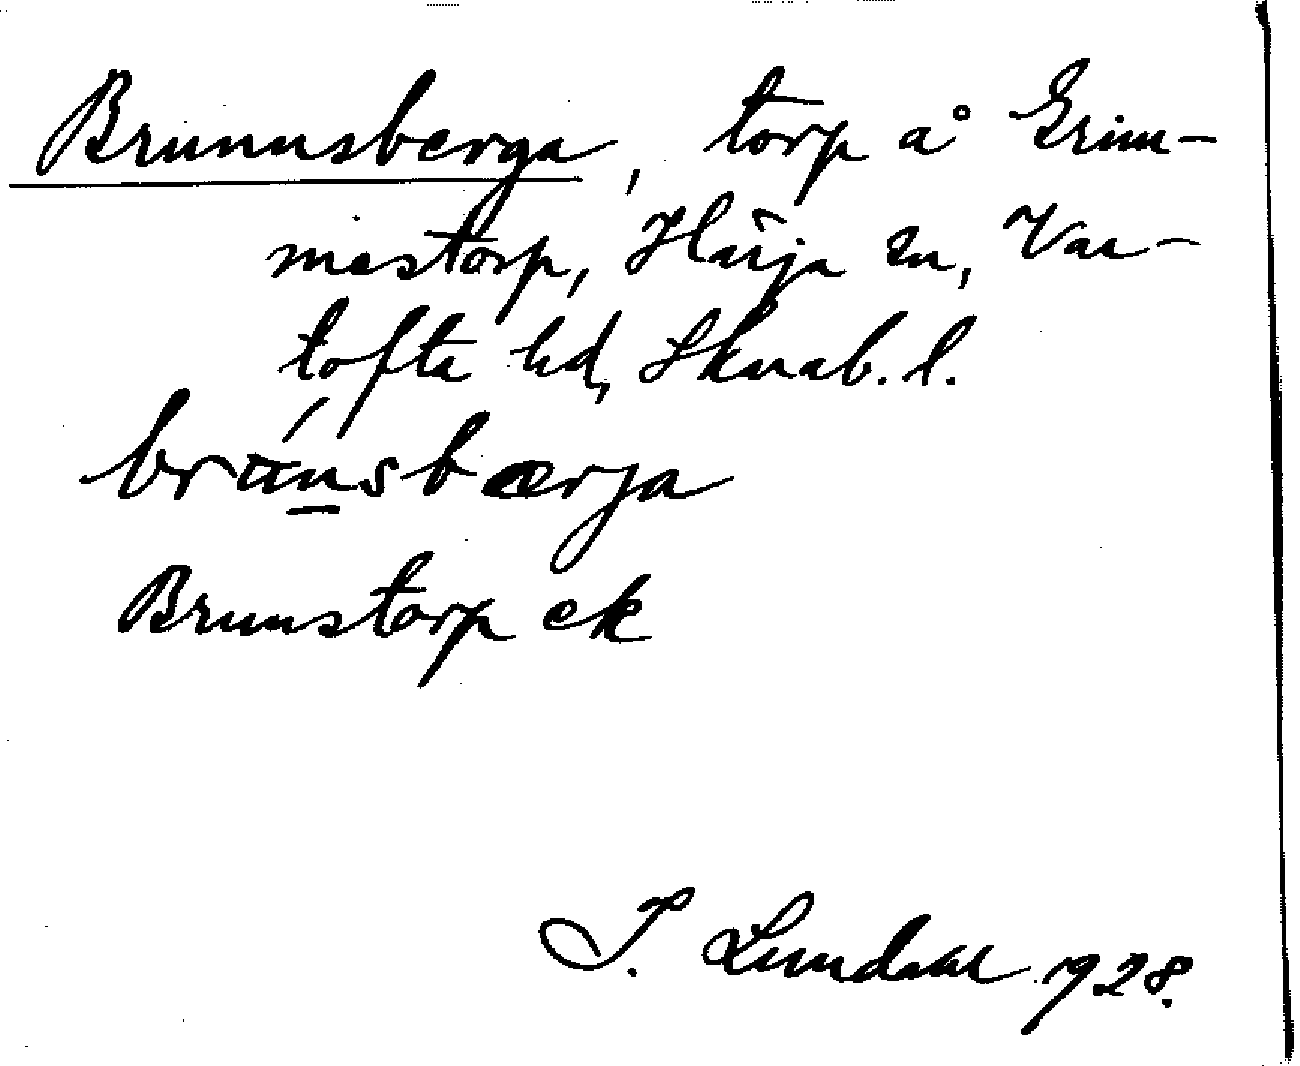 Brunnsberga, torp å Grim-
mestorp, Härja sn, Var-
tofta hd, Skarab. l.
brúnsbærja
Brunstorp ek
I. Lundahl 1928.